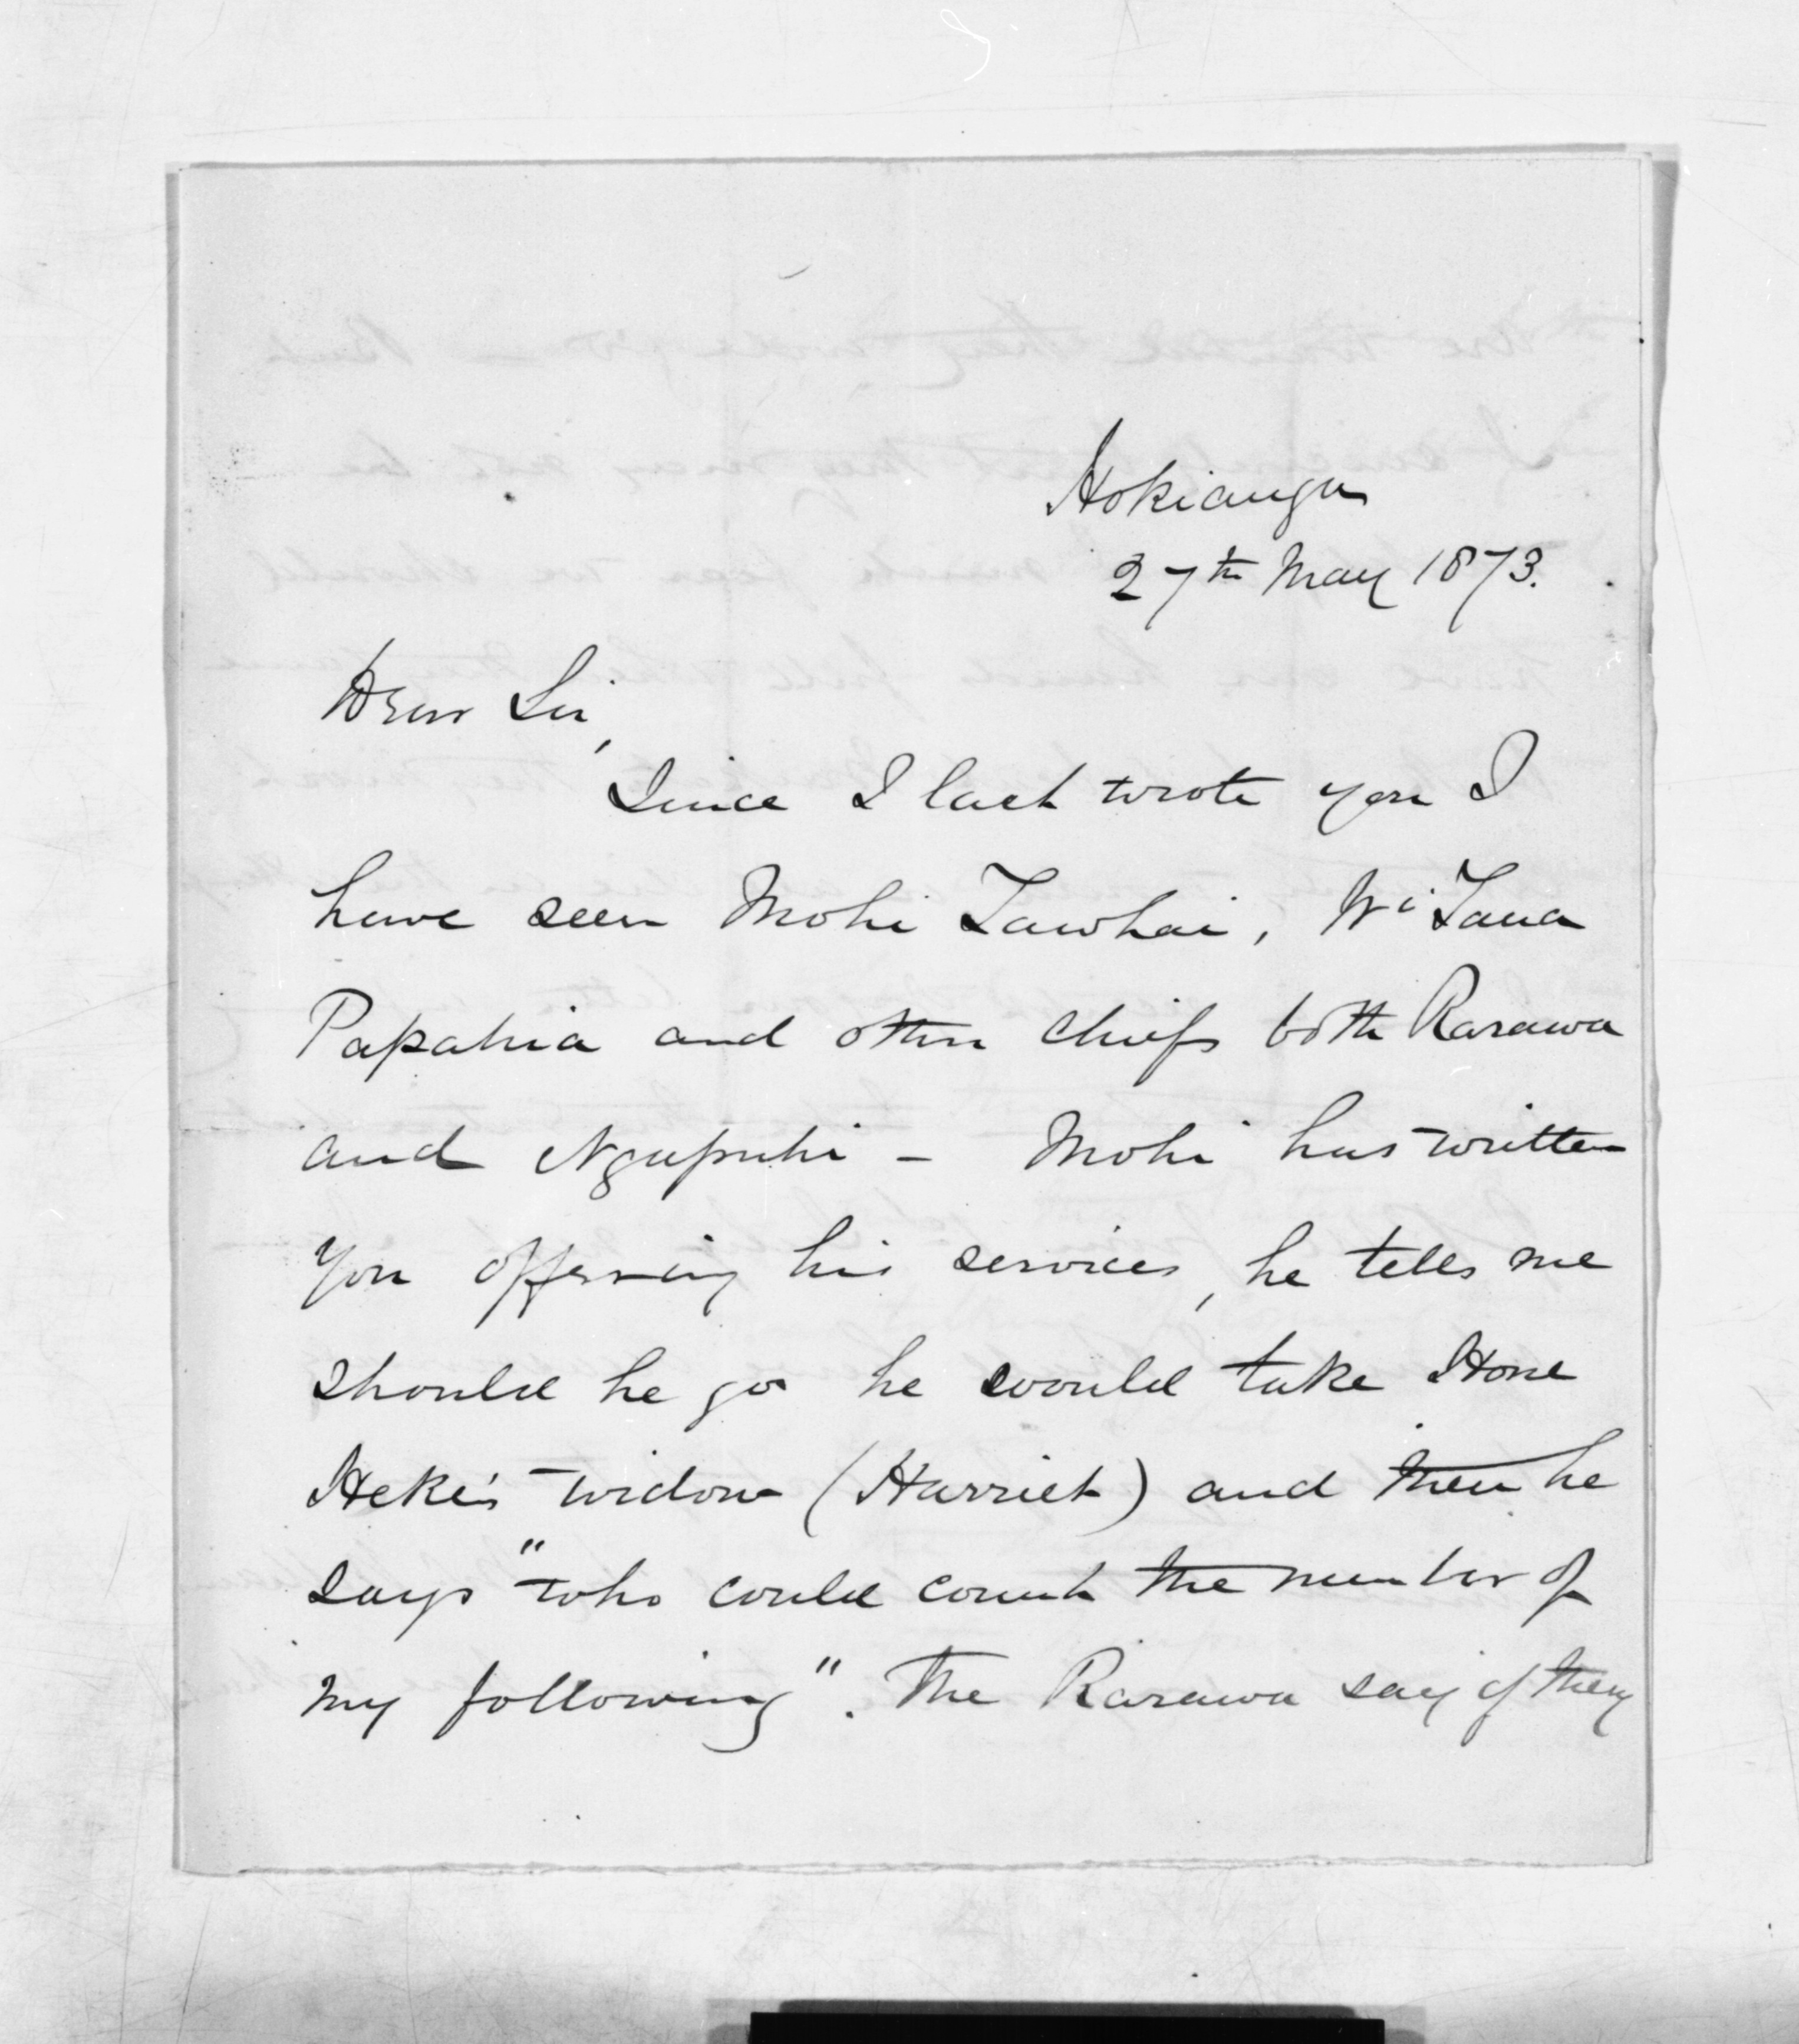 Hokianga
27th May 1873.
Dear Sir,
Since I last wrote you I
have seen Mohi Tawhai, Wi Tana
Papahia and other chiefs both Rarawa
and Ngapuhi - Mohi has written
you offering his services, he tells me
should he go he would take Hone
Heke's widow (Harriet) and then he
says "who could count the number of
my following". The Rarawa say if they